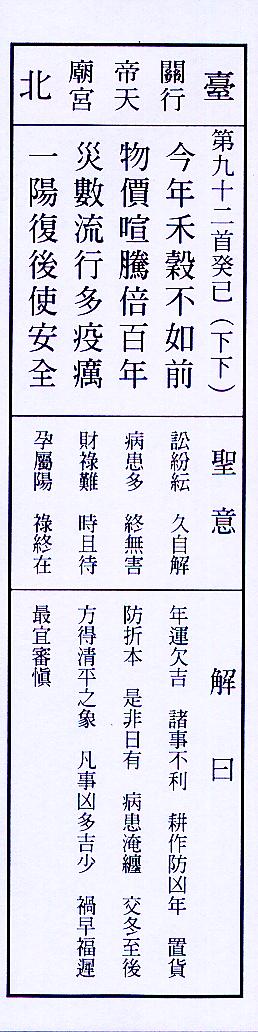 臺北
關行
帝天
廟宮
第九十二首癸已（下下）
今年禾穀不如前
物價喧騰倍百年
災數流行多疫癘
一陽復後使安全
聖意
訟紛紜　久自解
病患多　終無害
財祿難　時且待
孕屬陽　祿終在
解曰
年運欠吉　諸事不利　耕作防凶年　置貨
防折本　是非日有　病患淹纏　交冬至後
方得清平之象　凡事凶多吉少　禍早福遲
最宜審愼